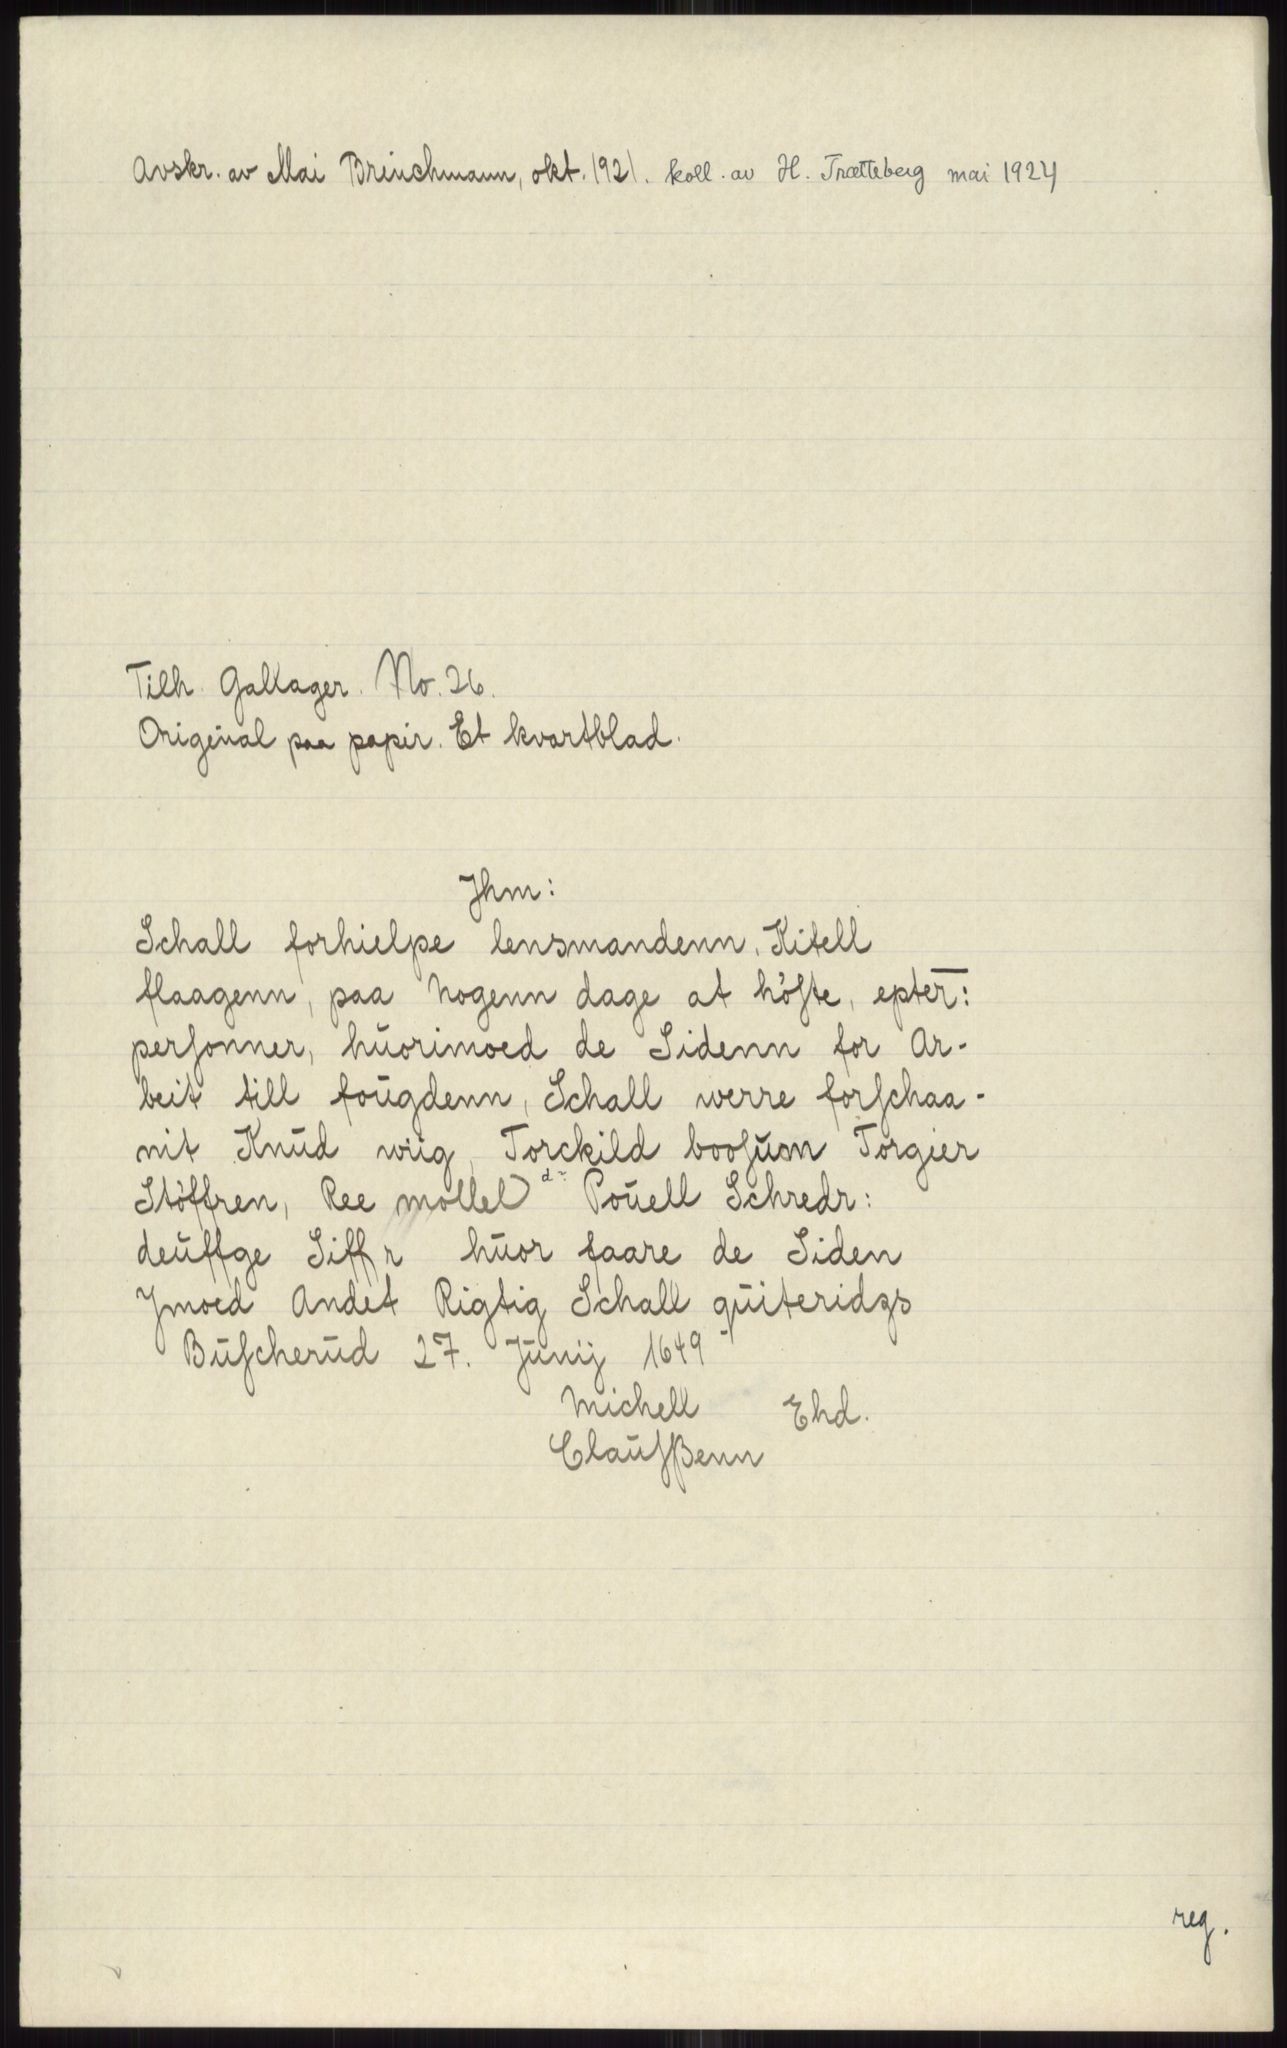 Avskr. av Mai Brinchmann, okt. 1921. koll. av H. Trætteberg mai 1924
Tilh. Gallager. No. 26.
Original paa papir. Et kvartblad.
Jhm:
Schall forhielpe lensmandenn, Kitell
flaagenn, paa Nogenn dage at höste, epter:
personner, huorimoed de Sidenn for Ar-
beit till fougdenn, Schall werre forschaa-
nit Knud wiig, Torckild boosum Torgier
Stöffren, Ree mollel d: Pouell Schredr:
deuffge Siffr huor faare de Siden
Jmoed Andet Rigtig Schall quiteridgs
Buscherud 27. Junij 1649
Michell Ehd.
Clausßenn
reg.